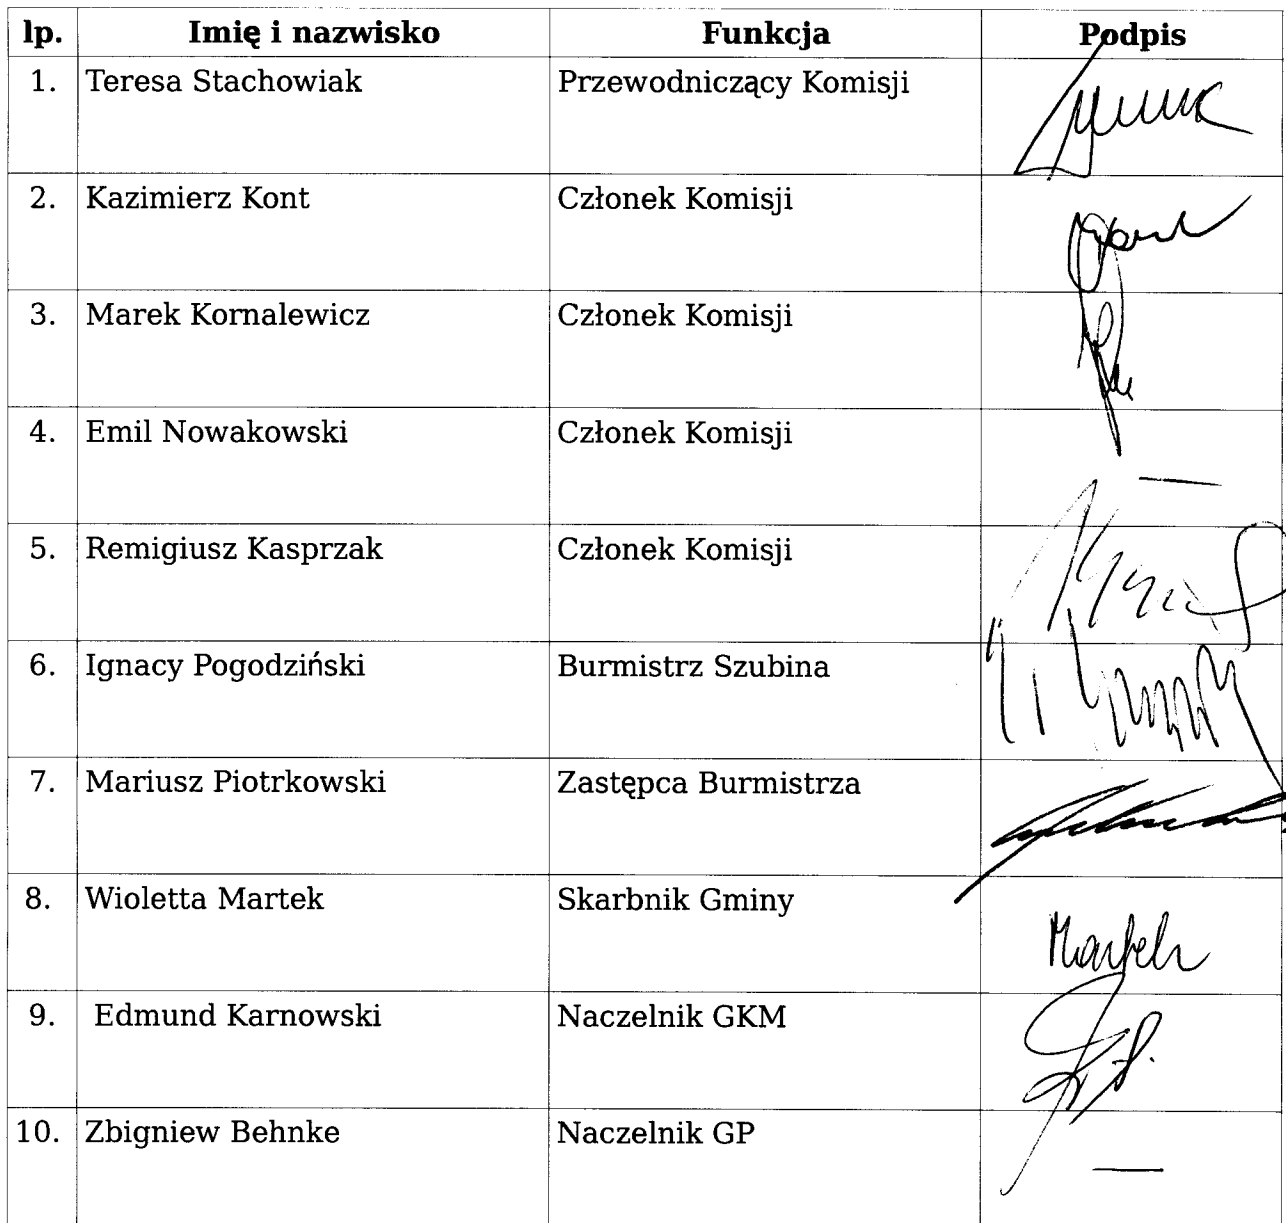 lp. Imię i nazwisko Funkcja Podpis
1. Teresa Stachowiak Przewodniczący Komisji
2. Kazimierz Kont Członek Komisji
3. Marek Kornalewicz Członek Komisji
4. Emil Nowakowski Członek Komisji —
5. Remigiusz Kasprzak Członek Komisji
6. Ignacy Pogodziński Burmistrz Szubina
7. Mariusz Piotrkowski Zastępca Burmistrza
8. Wioletta Martek Skarbnik Gminy Martek
9. Edmund Karnowski Naczelnik GKM
10. Zbigniew Behnke Naczelnik GP —